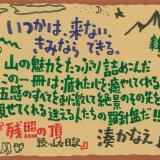 いつかは、来ない。
きみならできる。
山の魅力をたっぷり詰めこんだ
この一冊は、疲れた心を癒やしてくれる。
五感のすべてを刺激して絶景のその先を
魅せてくれる迷える人たちの羅針盤だ!!
『残照の頂
続・山女日記』
湊かなえ